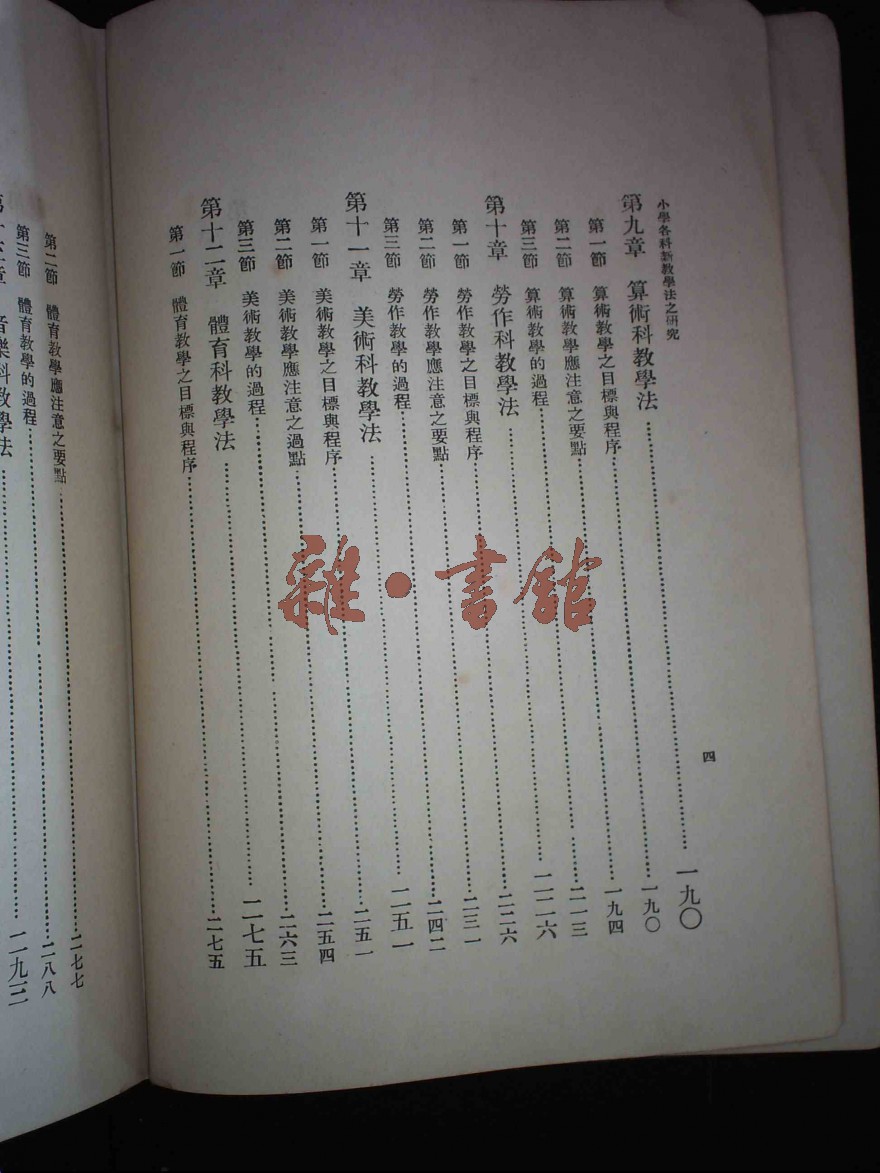 小學各科新教學法之研究
四
第九章 算術科教學法……一九〇
第一節 算術教學之目標與程序……一九〇
第二節 算術教學應注意之要點……一九四
第三節 算術教學的過程……二一三
第十章 勞作科教學法……二二六
第一節 勞作教學之目標與程序……二二六
第二節 勞作教學應注意之要點……二三一
第三節 勞作教學的過程……二四二
第十一章 美術科教學法……二五一
第一節 美術教學之目標與程序……二五一
第二節 美術教學應注意之過點……二五四
第三節 美術教學的過程……二六三
第十二章 體育科教學法……二七五
第一節 體育教學之目標與程序……二七五
第二節 體育教學應注意之要點……二七七
第三節 體育教學的過程……二八八
音樂科教學法……二九三
雜·書館